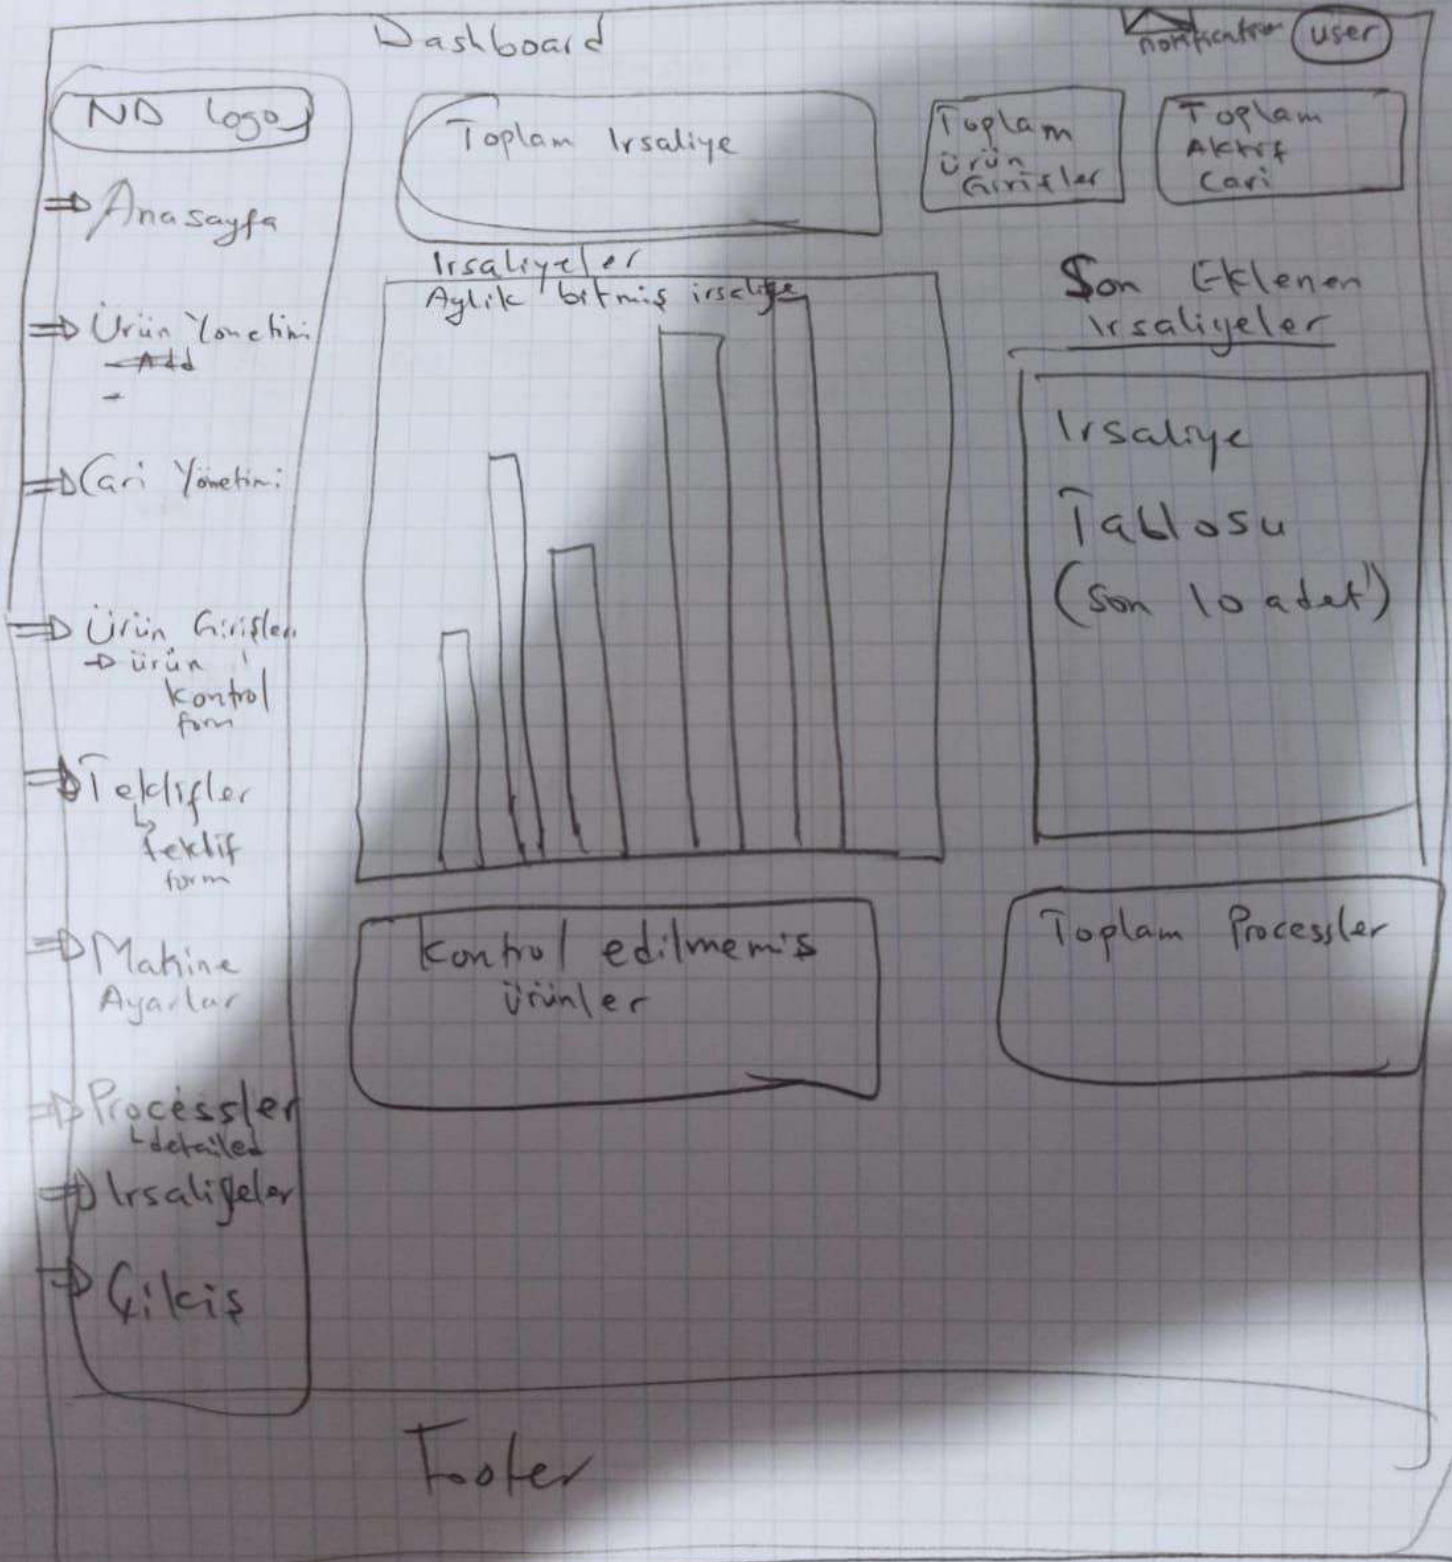 Dashboard
notification
user
ND Logo
Anasayfa
Ürün Yonetimi
Add
-
Cari Yönetimi
Ürün Girişleri
ürün
kontrol
form
Teklifler
teklif
form
Makine
Ayarlar
Processler
detailed
Irsaliyeler
Çikiş
Toplam Irsaliye
Toplam
ürün
Girişler
Toplam
Aktif
Cari
Irsaliyeler
Aylik bitmiş irsaliye
Son Eklenen
Irsaliyeler
Irsaliye
Tablosu
(Son 10 adet)
Kontrol edilmemiş
Ürünler
Toplam Processler
Footer